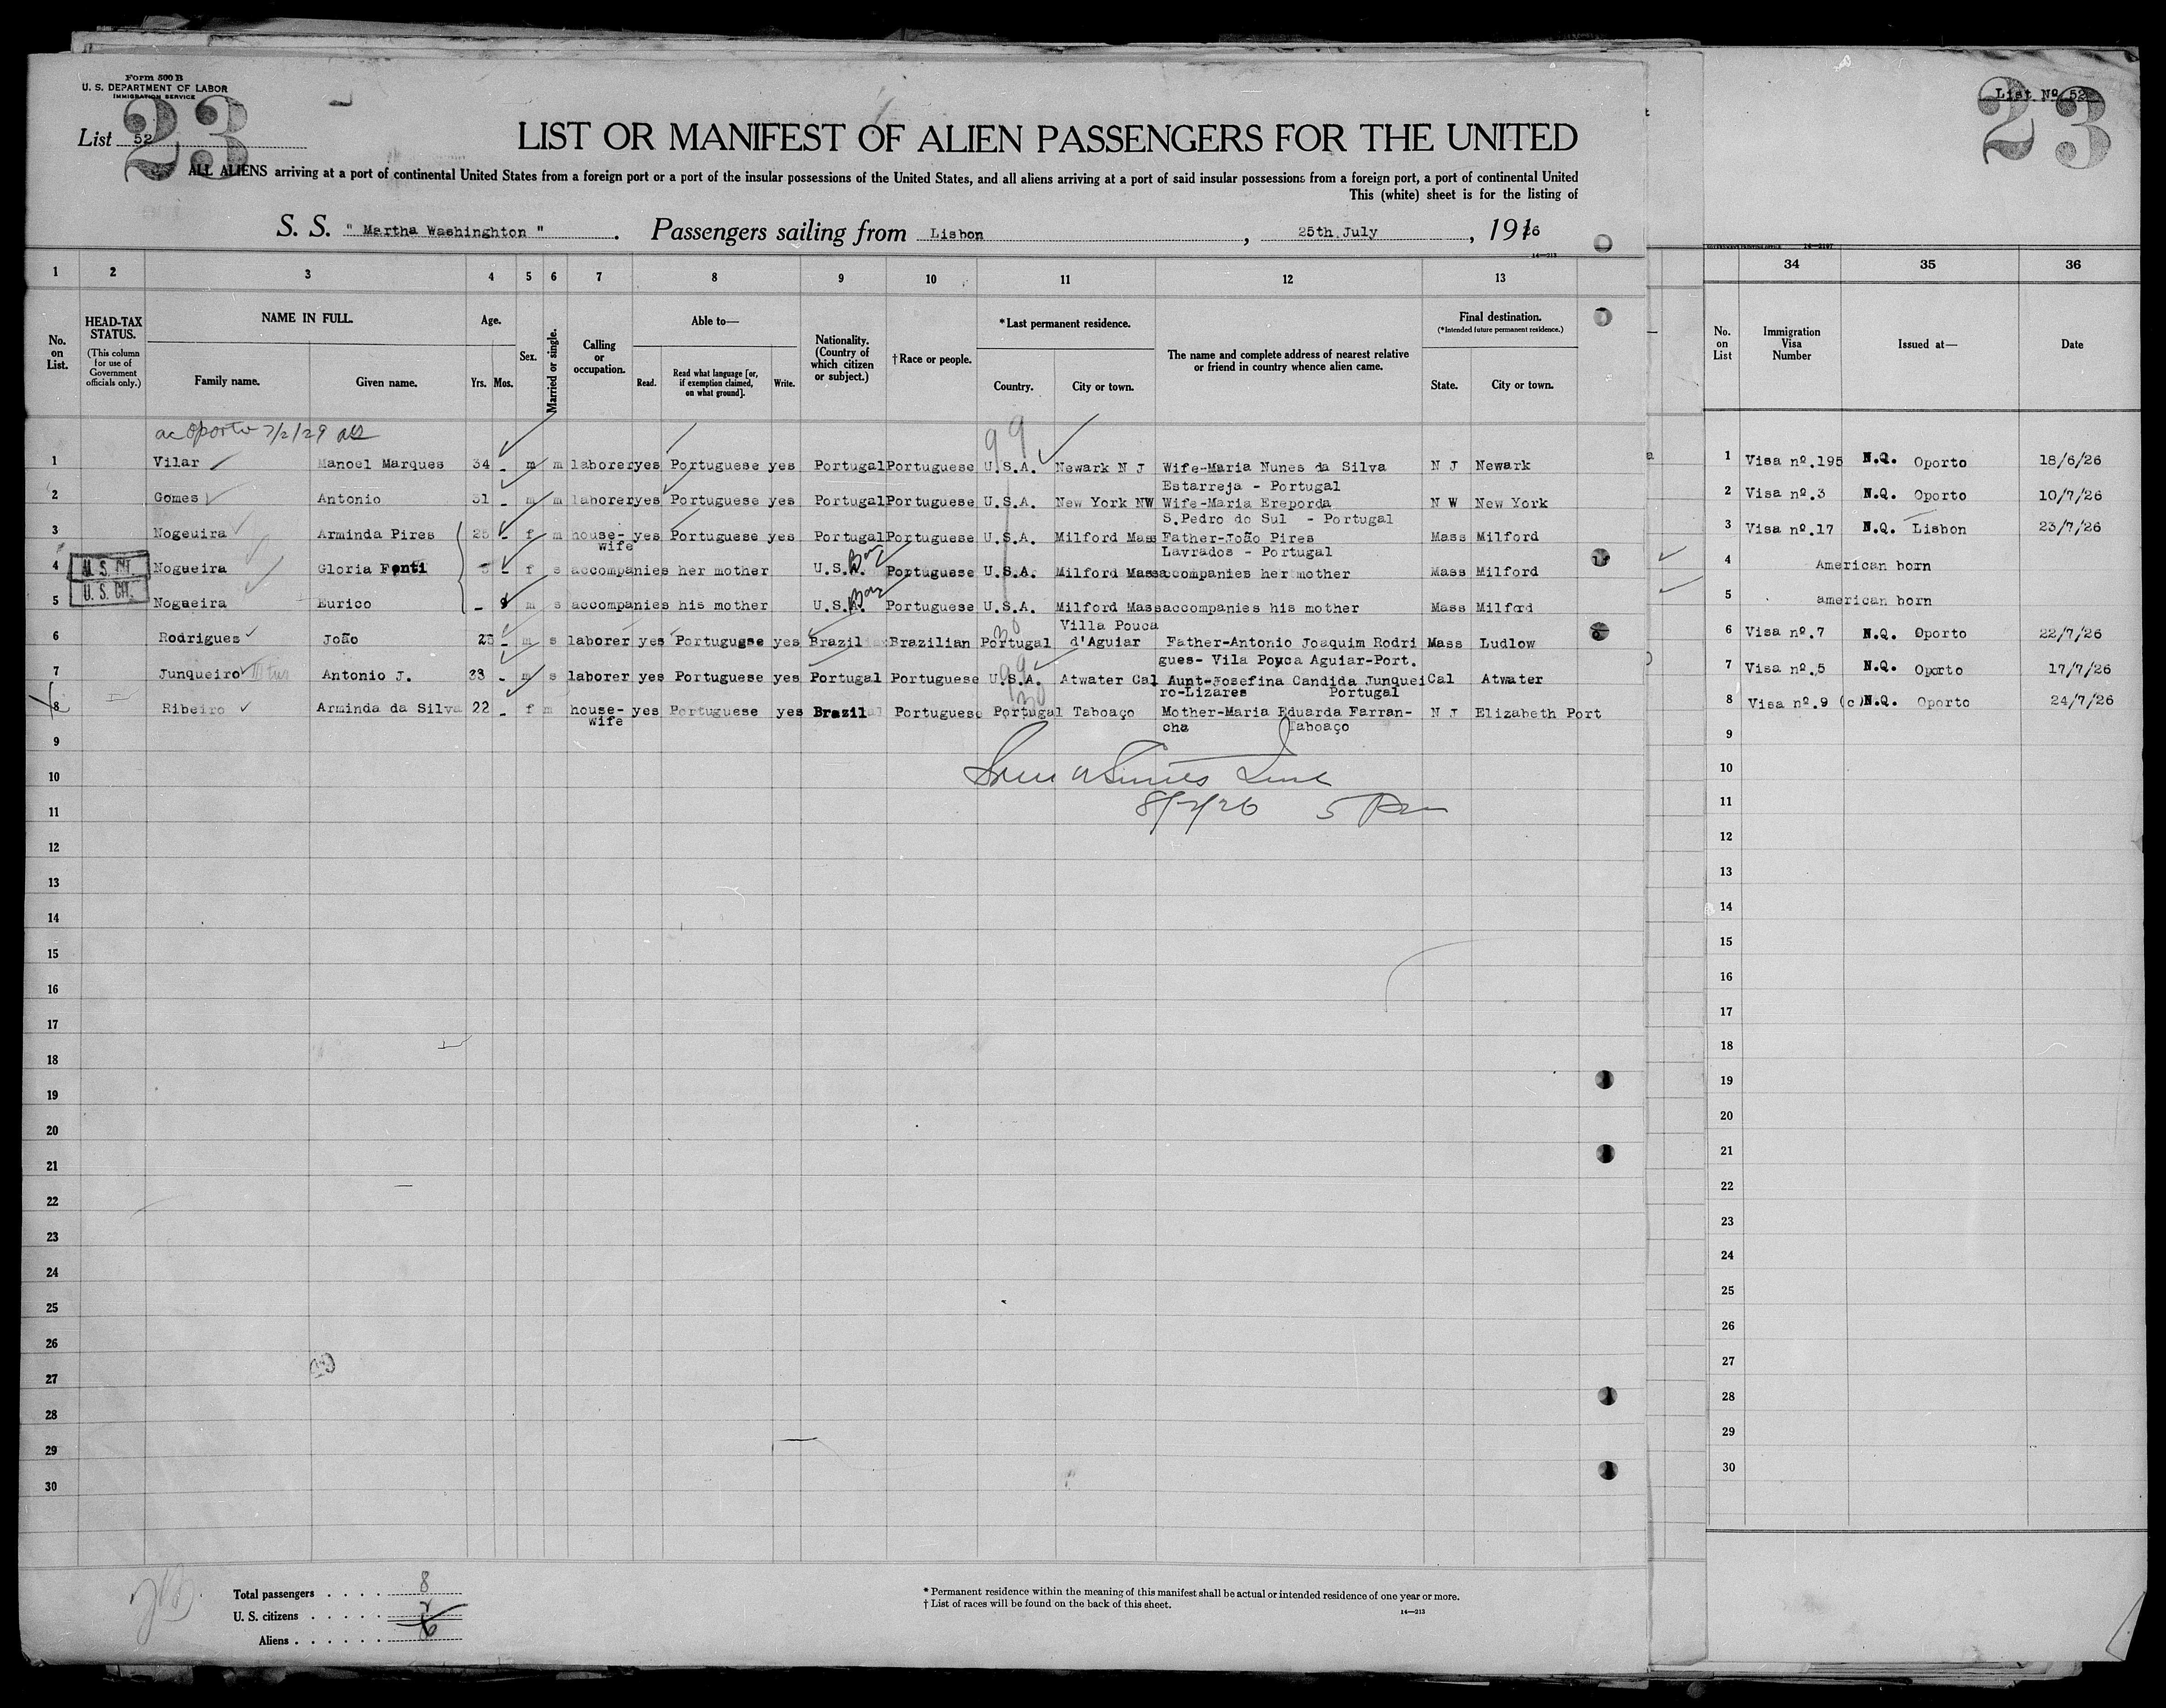 Form 500 B
U. S. DEPARTMENT OF LABOR
IMMIGRATION SERVICE
List 52
23
LIST OR MANIFEST OF ALIEN PASSENGERS FOR THE UNITED
ALL ALIENS arriving at a port of continental United States from a foreign port or a port of the insular possessions of the United States, and all aliens arriving at a port of said insular possessions from a foreign port, a port of continental United
This (white) sheet is for the listing of
S. S. " Martha Washinghton ". Passengers sailing from Lisbon, 25th.July, 1926
14—213
1 2 3 4 5 6 7 8 9 10 11 12 13
No. on List.
HEAD-TAX STATUS.
(This column for use of Government officials only.)
NAME IN FULL.
Family name. Given name.
Age.
Yrs. Mos.
Sex.
Married or single.
Calling or occupation.
Able to—
Read. Read what language [or, if exemption claimed, on what ground]. Write.
Nationality. (Country of which citizen or subject.)
†Race or people.
*Last permanent residence.
Country. City or town.
The name and complete address of nearest relative or friend in country whence alien came.
Final destination.
(*Intended future permanent residence.)
State. City or town.
Oporto 7/2/29
99
1 Vilar Manoel Marques 34 - m m laborer yes Portuguese yes Portugal Portuguese U.S.A. Newark N J Wife-Maria Nunes da Silva N J Newark
Estarreja - Portugal
2 Gomes Antonio 31 - m m laborer yes Portuguese yes Portugal Portuguese U.S.A. New York NW Wife-Maria Ereporda N W New York
S.Pedro do Sul - Portugal
3 Nogeuira Arminda Pires 25 - f m house- yes Portuguese yes Portugal Portuguese U.S.A. Milford Mass Father-João Pires Mass Milford
wife
Lavrados - Portugal
U. S. CIT.
4 Nogueira Gloria Fonti - f s accompanies her mother U.S.A. Portuguese U.S.A. Milford Mass accompanies her mother Mass Milford
U. S. CIT.
5 Nogueira Eurico - 9 m s accompanies his mother U.S.A. Portuguese U.S.A. Milford Mass accompanies his mother Mass Milford
Villa Pouca
6 Rodrigues João 23 - m s laborer yes Portuguese yes Brazil Brazilian Portugal d'Aguiar Father-Antonio Joaquim Rodri Mass Ludlow
gues- Vila Pouca Aguiar-Port.
7 Junqueiro Antonio J. 33 - m s laborer yes Portuguese yes Portugal Portuguese U.S.A. Atwater Cal Aunt-Josefina Candida Junquei Cal Atwater
ro-Lizares Portugal
8 Ribeiro Arminda da Silva 22 - f m house- yes Portuguese yes Brazil Portuguese Portugal Taboaço Mother-Maria Eduarda Farran- N J Elizabeth Port
wife
cha Taboaço
9
10
8/2/26 5 Pm
11
12
13
14
15
16
17
18
19
20
21
22
23
24
25
26
27
28
29
30
Total passengers . . . . 8
U. S. citizens . . . . . 2
Aliens . . . . . . 6
* Permanent residence within the meaning of this manifest shall be actual or intended residence of one year or more.
† List of races will be found on the back of this sheet.
14—213
List Nº 52
23
34 35 36
No. on List
Immigration Visa Number
Issued at—
Date
1 Visa nº.195 N.Q. Oporto 18/6/26
2 Visa nº.3 N.Q. Oporto 10/7/26
3 Visa nº.17 N.Q. Lisbon 23/7/26
4 American born
5 american born
6 Visa nº.7 N.Q. Oporto 22/7/26
7 Visa nº.5 N.Q. Oporto 17/7/26
8 Visa nº.9 (c) N.Q. Oporto 24/7/26
9
10
11
12
13
14
15
16
17
18
19
20
21
22
23
24
25
26
27
28
29
30